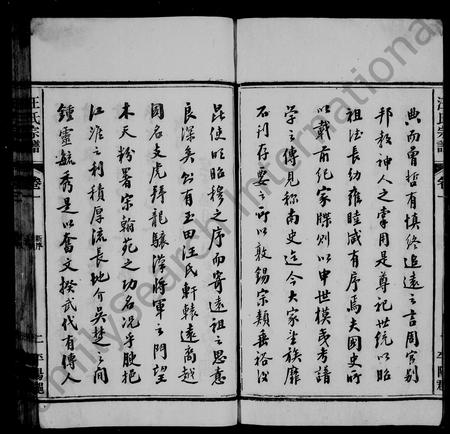 汪氏宗譜
卷一
典而曾哲有慎終追遠之言周家别
邦於神人之掌用是尊祀世統以昭
祖法長幼雍睦咸有序焉夫國史所
以載前紀家牒則以申世模氏考譜
學之傳見称南史迄今大家望族靡
不刊存要之所以敦錫宗類垂裕後
昆使以昭穆之序而寄遠祖之思意
良深矣公有玉田汪氏軒轅遠裔越
國名支虎拜龍驤漢將軍之門望
木天粉署宋翰苑之功名况乎腴挹
江淮之利積厚流長地介吳楚之間
鍾靈毓秀是以奮文揆武代有傳人
汪氏宗譜
卷一
舊序
平陽郡
FamilySearch International